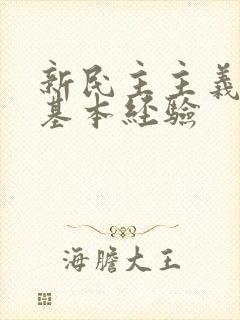 新民主主義
基本经驗
海膽大王